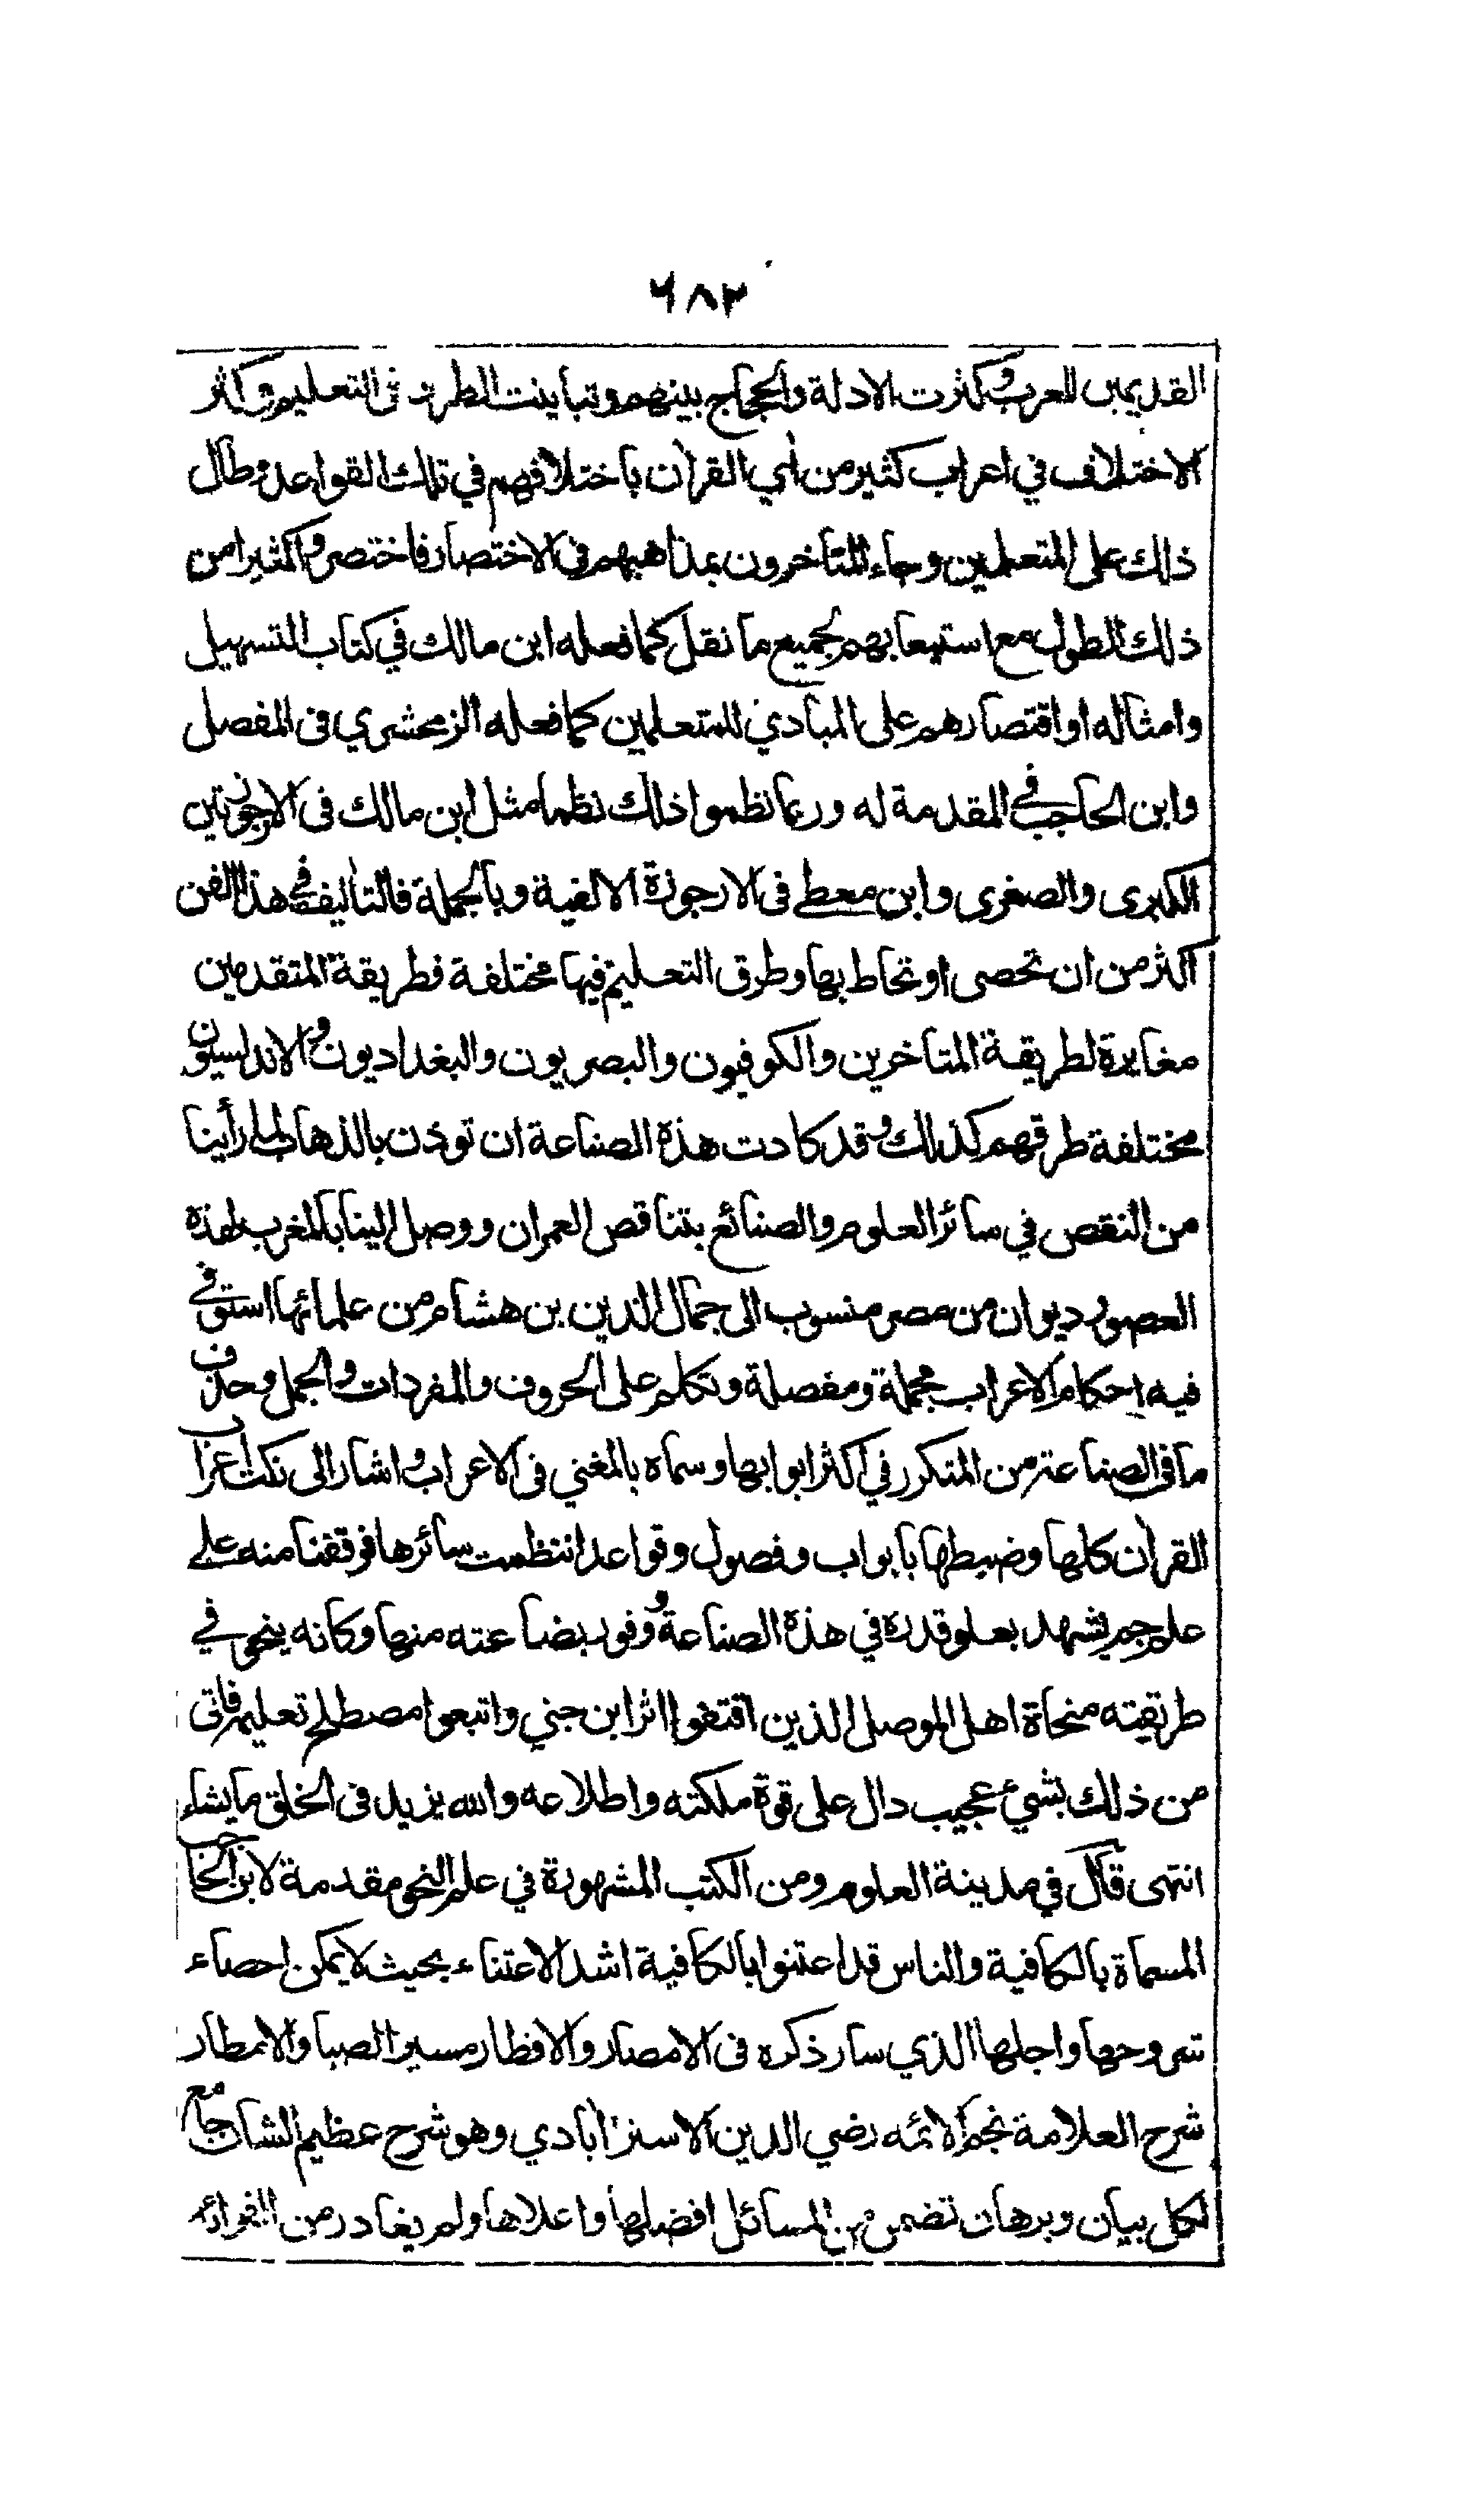 ٦٨٢
القديمين للعرب وكثرت الادلة والحجاج بينهم وتباينت الطرق فى التعليم وكثر
الاختلاف في اعراب كثير من اٰي القراٰن باختلافهم في تلك القواعد وطال
ذلك على المتعلمين وجاء المتأخرون بمذاهبهم فى الاختصار فاختصروا كثيرا من
ذلك الطول مع استيعابهم لجميع ما نقل كما فعله ابن مالك في كتاب التسهيل
وامثاله او اقتصارهم على المبادئ للمتعلمين كما فعله الزمخشري فى المفصل
وابن الحاجب في المقدمة له وربما نظموا ذلك نظما مثل ابن مالك فى الارجوزتين
الكبرى والصغرى وابن معطي فى الارجوزة الالفية وبالجملة فالتاليف في هذا الفن
اكثر من ان تحصى او تحاط بها وطرق التعليم فيها مختلفة فطريقة المتقدمين
مغايرة لطريقة المتاخرين والكوفيون والبصريون والبغداديون والاندلسيون
مختلفة طرقهم كذلك وقد كادت هذه الصناعة ان توذن بالذهاب لما رأينا
من النقص في سائر العلوم والصنائع بتناقص العمران ووصل الينا بالمغرب لهذه
العصور ديوان من مصر منسوب الى جمال الدين بن هشام من علمائها استوفى
فيه احكام الاعراب مجملة ومفصلة وتكلم على الحروف والمفردات والجمل وحذف
ما فى الصناعة من المتكرر في اكثر ابوابها وسماه بالمغني فى الاعراب واشار الى نكت اعراب
القراٰن كلها وضبطها بابواب وفصول وقواعد انتظمت سائرها فوقفنا منه على
علم جم يشهد بعلو قدره في هذه الصناعة ووفور بضاعته منها وكانه ينحو في
طريقته منحاة اهل الموصل الذين اقتفوا اثر ابن جني واتبعوا مصطلح تعليمه فاتى
من ذلك بشيء عجيب دال على قوة ملكته واطلاعه والله يزيد فى الخلق ما يشاء
انتهى قال في مدينة العلوم ومن الكتب المشهورة في علم النحو مقدمة لابن الحاجب
المسماة بالكافية والناس قد اعتنوا بالكافية اشد الاعتناء بحيث لا يمكن احصاء
شروحها واجلها الذي سار ذكره فى الامصار والاقطار مسير الصبا والامطار
شرح العلامة نجم الائمه رضي الدين الاستراٰبادي وهو شرح عظيم الشان جامع
لكل بيان وبرهان تضمن من المسائل افضلها واعلاها ولم يغادر من الفوائد